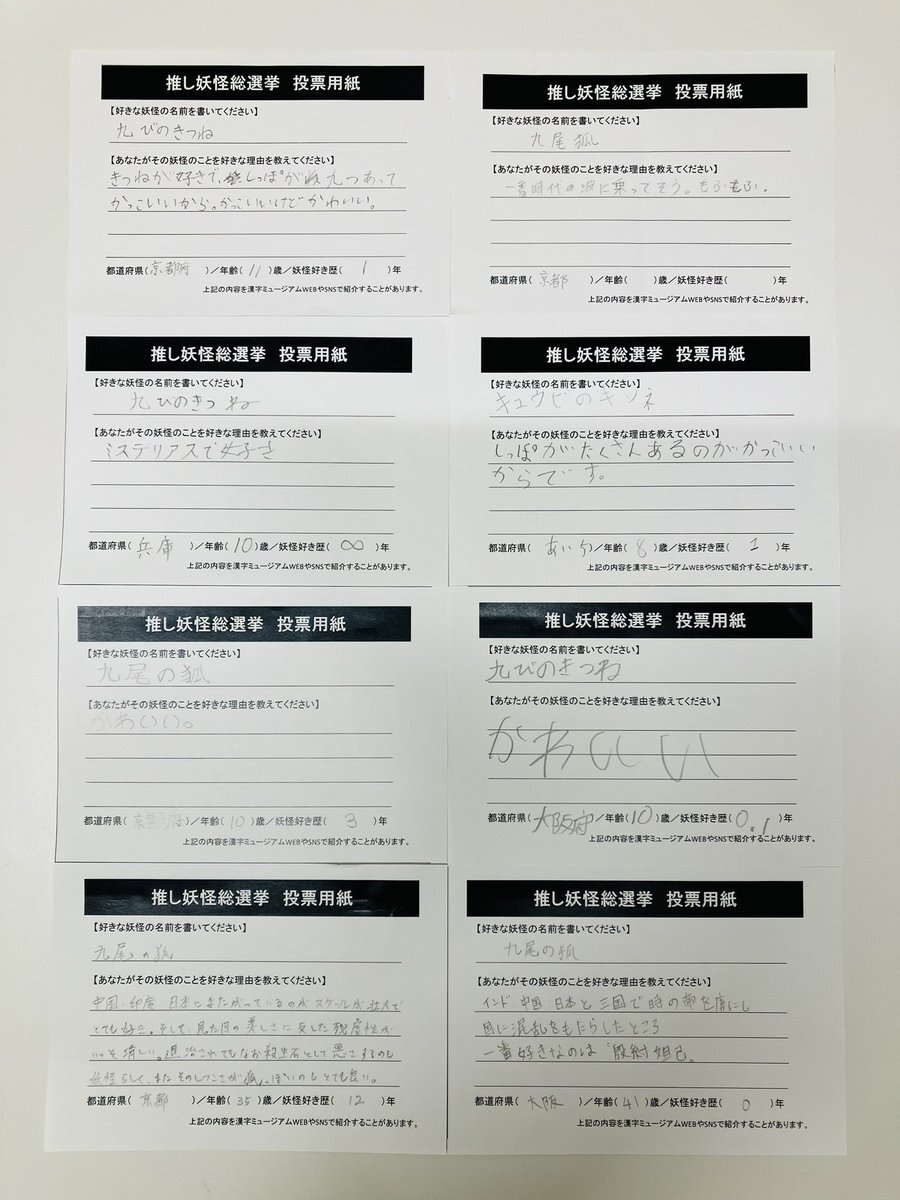 推し妖怪総選挙 投票用紙
【好きな妖怪の名前を書いてください】
九びのきつね
【あなたがその妖怪のことを好きな理由を教えてください】
きつねが好きで、しっぽが九つあって
かっこいいから。かっこいいけどかわいい。
都道府県(京都府)/年齢(11)歳/妖怪好き歴(1)年
上記の内容を漢字ミュージアムWEBやSNSで紹介することがあります。
推し妖怪総選挙 投票用紙
【好きな妖怪の名前を書いてください】
九尾狐
【あなたがその妖怪のことを好きな理由を教えてください】
一番時代の波に乗ってそう。もふもふ。
都道府県(京都)/年齢( )歳/妖怪好き歴( )年
上記の内容を漢字ミュージアムWEBやSNSで紹介することがあります。
推し妖怪総選挙 投票用紙
【好きな妖怪の名前を書いてください】
九びのきつね
【あなたがその妖怪のことを好きな理由を教えてください】
ミステリアスで好き
都道府県(兵庫)/年齢(10)歳/妖怪好き歴(∞)年
上記の内容を漢字ミュージアムWEBやSNSで紹介することがあります。
推し妖怪総選挙 投票用紙
【好きな妖怪の名前を書いてください】
キュウビのキツネ
【あなたがその妖怪のことを好きな理由を教えてください】
しっぽがたくさんあるのがかっこいい
からです。
都道府県(あいち)/年齢(8)歳/妖怪好き歴(1)年
上記の内容を漢字ミュージアムWEBやSNSで紹介することがあります。
推し妖怪総選挙 投票用紙
【好きな妖怪の名前を書いてください】
九尾の狐
【あなたがその妖怪のことを好きな理由を教えてください】
かわいい。
都道府県(京都府)/年齢(10)歳/妖怪好き歴(3)年
上記の内容を漢字ミュージアムWEBやSNSで紹介することがあります。
推し妖怪総選挙 投票用紙
【好きな妖怪の名前を書いてください】
九びのきつね
【あなたがその妖怪のことを好きな理由を教えてください】
かわいい
都道府県(大阪府)/年齢(10)歳/妖怪好き歴(0.1)年
上記の内容を漢字ミュージアムWEBやSNSで紹介することがあります。
推し妖怪総選挙 投票用紙
【好きな妖怪の名前を書いてください】
九尾の狐
【あなたがその妖怪のことを好きな理由を教えてください】
中国・印度・日本にまたがっているのがスケールが壮大で
とても好き。そして、見た目の美しさに反した残虐性が
いっそ清しい。退治されてもなお殺生石として悪さするのも
妖怪らしく、またそのしつこさが狐っぽいのもとても良い。
都道府県(京都)/年齢(35)歳/妖怪好き歴(12)年
上記の内容を漢字ミュージアムWEBやSNSで紹介することがあります。
推し妖怪総選挙 投票用紙
【好きな妖怪の名前を書いてください】
九尾の狐
【あなたがその妖怪のことを好きな理由を教えてください】
インド、中国、日本と三国で時の帝を虜にし
国に混乱をもたらしたところ
一番好きなのは"殷紂 妲己"
都道府県(大阪)/年齢(41)歳/妖怪好き歴(0)年
上記の内容を漢字ミュージアムWEBやSNSで紹介することがあります。